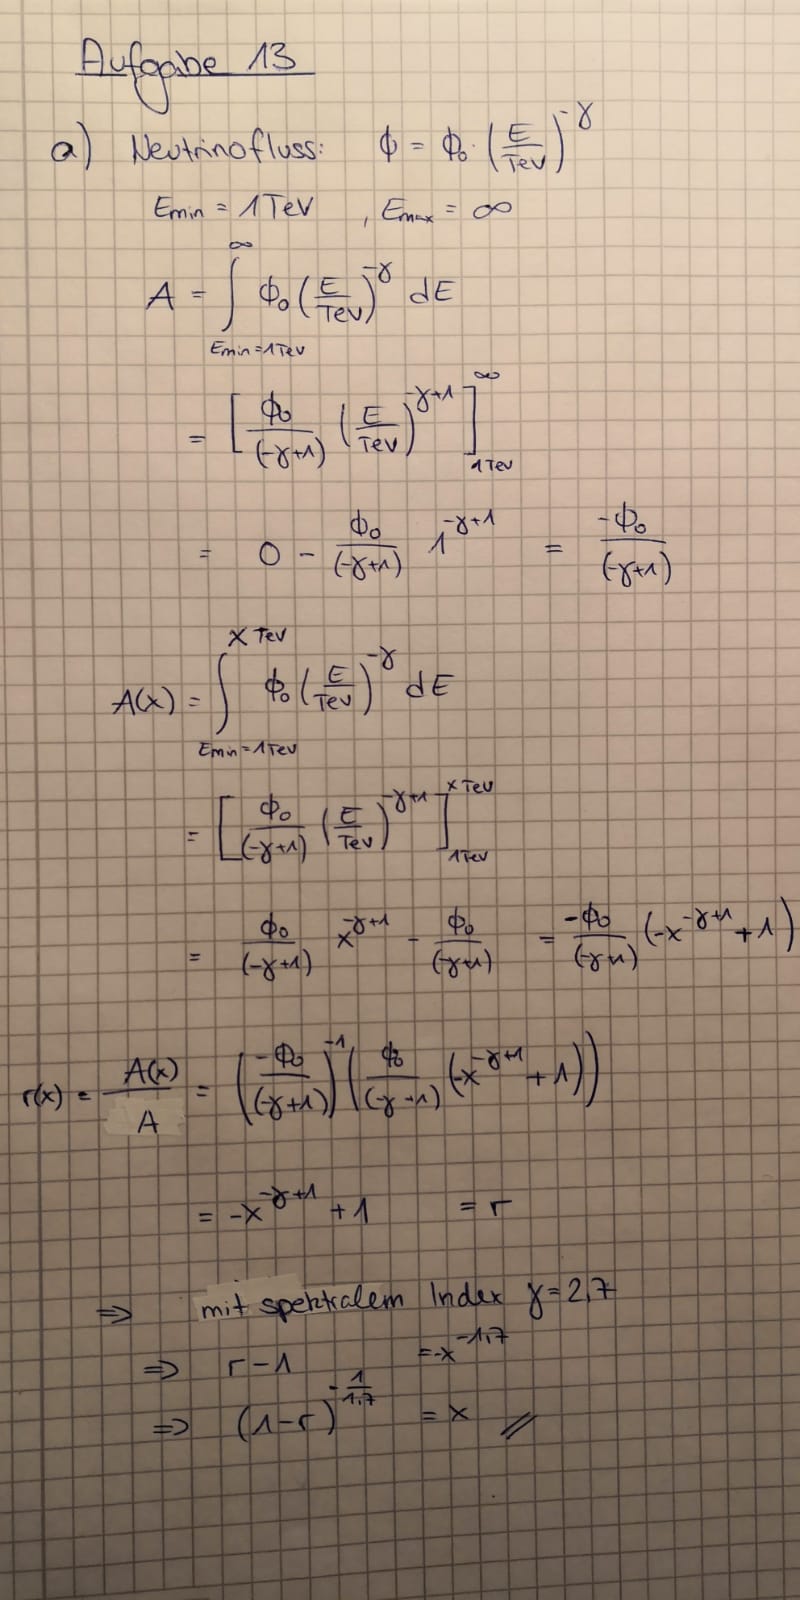 Aufgabe 13
a) Neutrinofluss: ϕ = ϕ₀ · (E/TeV)^-γ
Emin = 1 TeV , Emax = ∞
A = ∫_{Emin = 1TeV}^{∞} ϕ₀ (E/TeV)^-γ dE
= [ϕ₀/(-γ+1) (E/TeV)^{-γ+1}]_{1TeV}^{∞}
= 0 - ϕ₀/(-γ+1) 1^{-γ+1} = -ϕ₀/(-γ+1)
A(x) = ∫_{Emin = 1TeV}^{x TeV} ϕ₀ (E/TeV)^-γ dE
= [ϕ₀/(-γ+1) (E/TeV)^{-γ+1}]_{1TeV}^{x TeV}
= ϕ₀/(-γ+1) x^{-γ+1} - ϕ₀/(-γ+1) = -ϕ₀/(-γ+1) (-x^{-γ+1} + 1)
r(x) = A(x)/A = (-ϕ₀/(-γ+1))^-1 (ϕ₀/(-γ+1) (-x^{-γ+1} + 1))
= -x^{-γ+1} + 1 = r
⇒ mit spektralem Index γ = 2,7
⇒ r - 1 = -x^{-1,7}
⇒ (1-r)^{-1/1,7} = x //